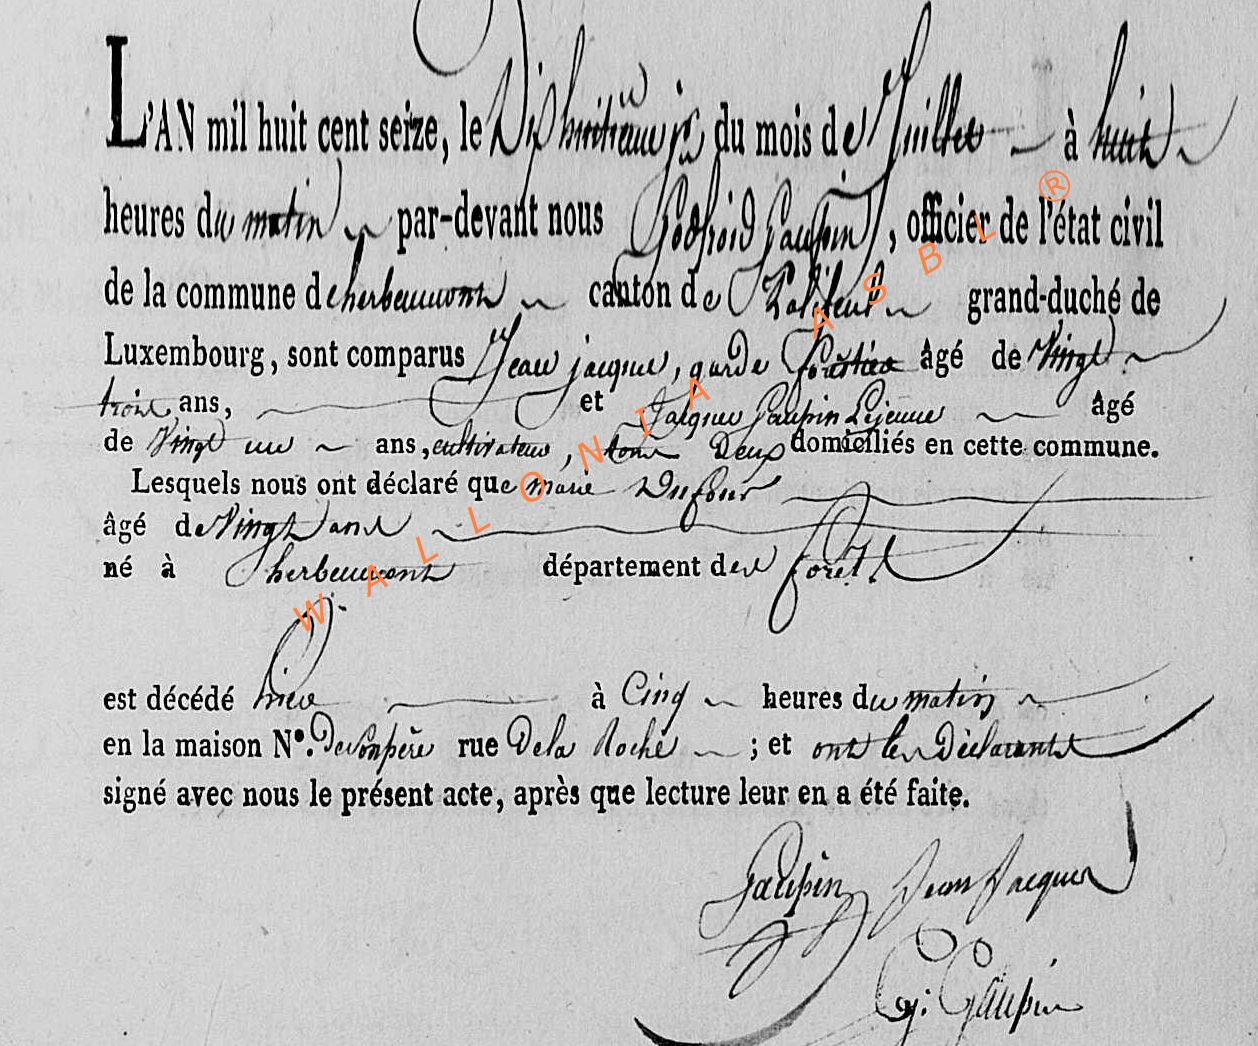 L'AN mil huit cent seize, le Dix huitieme jr du mois de Juillet à huit
heures du matin par-devant nous Godfroid Gaupin, officier de l'état civil
de la commune de herbeumont canton de Paliseul grand-duché de
Luxembourg, sont comparus Jean jacque, garde forêtier âgé de Vingt
trois ans, et Jacque Gaupin Lejeune âgé
de Vingt un ans, cultivateur, tous Deux domiciliés en cette commune.
Lesquels nous ont déclaré que marie Dufour
âgé de Vingt ans
né à herbeumont département des forêts
est décédé hier à Cinq heures du matin
en la maison N°. De son père rue De la Roche ; et ont les Déclarants
signé avec nous le présent acte, après que lecture leur en a été faite.
Gaupin Jean Jacques
G: Gaupin
WALLONIA ASBL ®